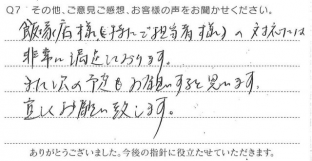 Q7 その他、ご意見ご感想、お客様の声をお聞かせください。
飯塚店様(特にご担当者様)の対応には
非常に満足しております。
また次の予定もお願いすると思います。
宜しくお願い致します。
ありがとうございました。今後の指針に役立たせていただきます。